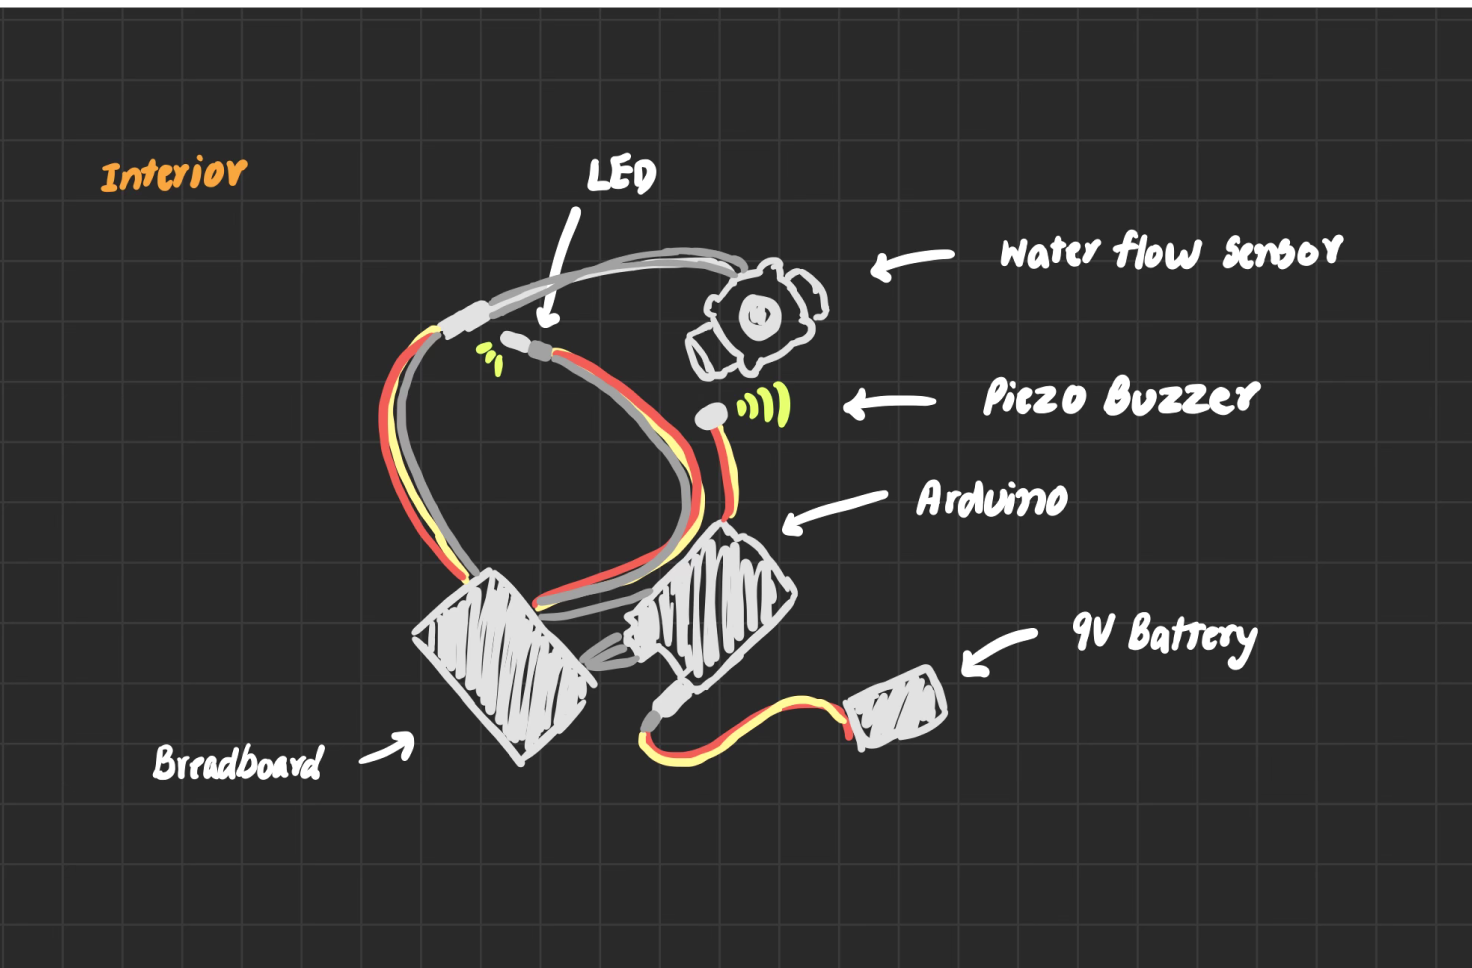 Interior
LED
Water flow sensor
Piezo Buzzer
Arduino
9V Battery
Breadboard